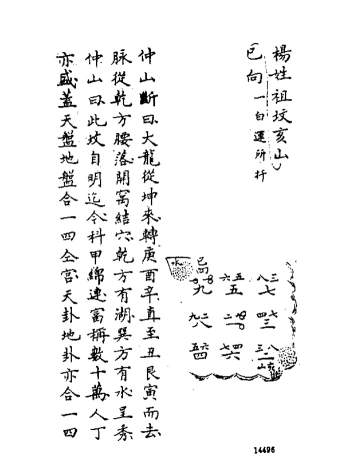 楊姓祖坟亥山
巳向 一白運所扦
水
九
六五
五
八三
七
四七
三
五六
四
七四
六
仲山斷曰大龍從坤來轉庚酉辛直至丑艮寅而去
脉從乾方腰落開窩結穴乾方有湖巽方有水呈秀
仲山曰此坟自明迄今科甲綿連富稱數十萬人丁
亦盛蓋天盤地盤合一四仝宮天卦地卦亦合一四
14496